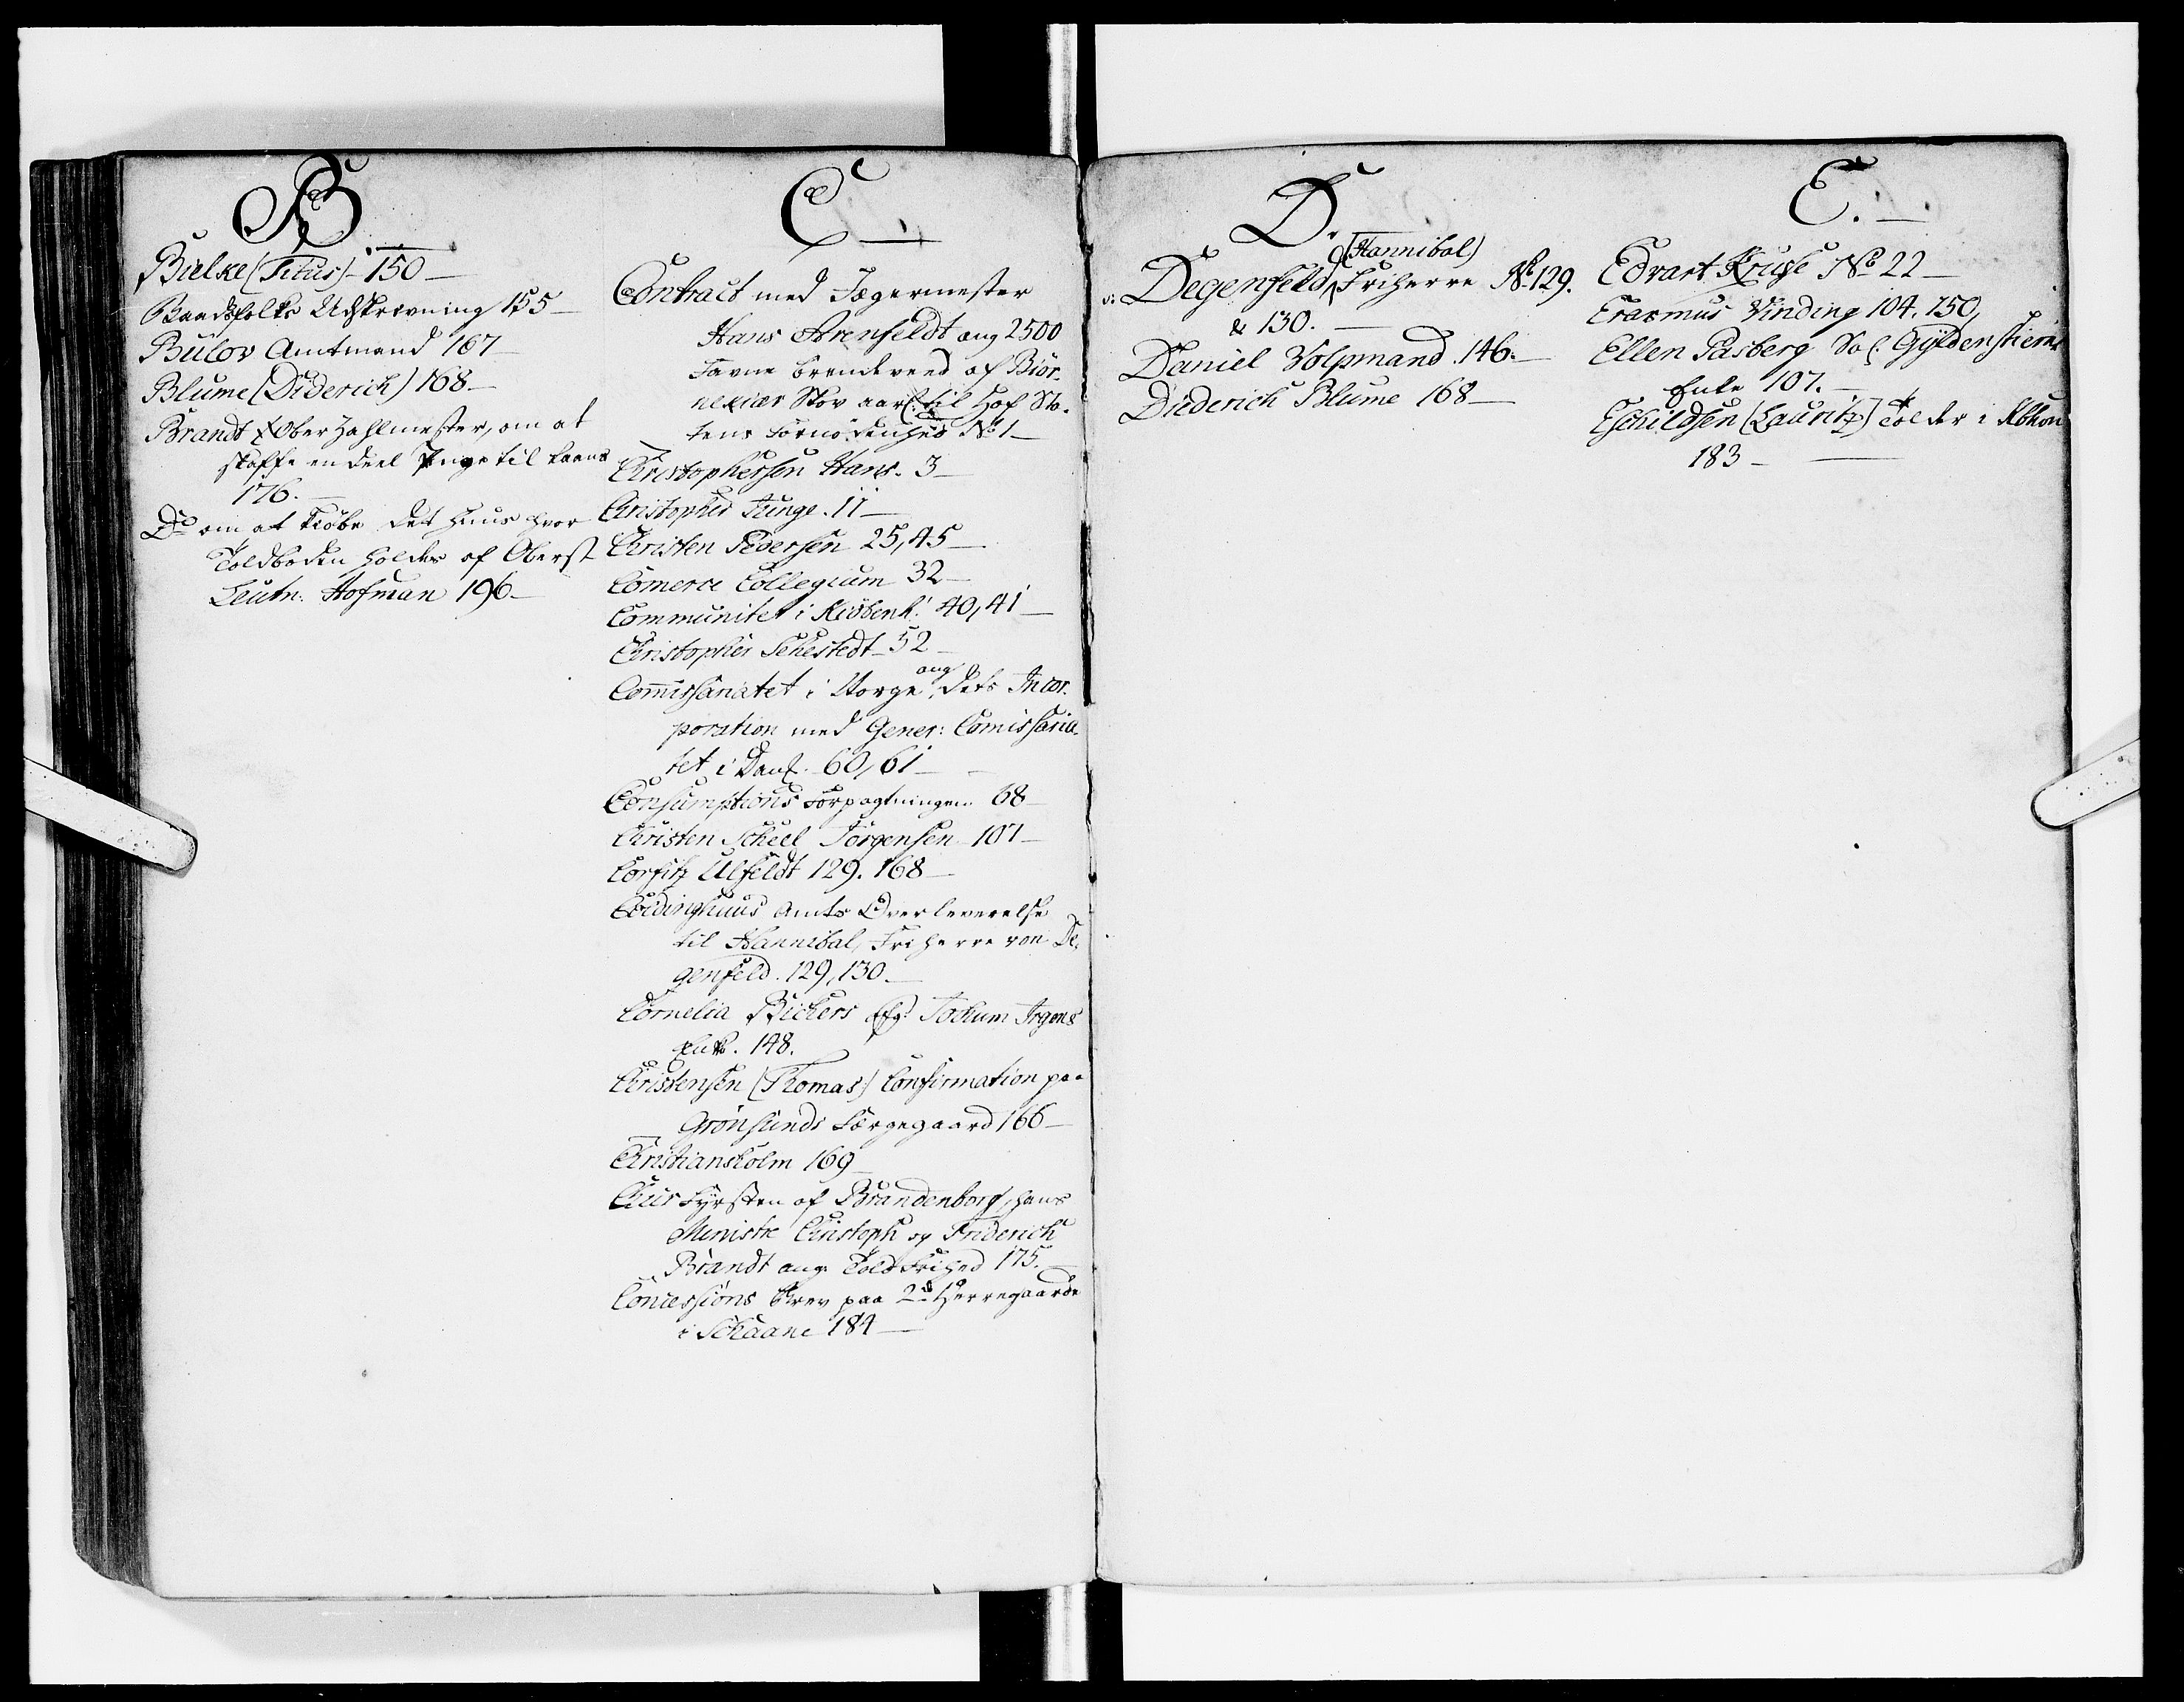 B
Bielke (Titus) - 150 -
Baadsfolks Udskrivning 155 -
Bülov Amtmand 167
Blume (Diderich) 168 -
Brandt Oberzahlmester, om at
skaffe en deel Penge til Laans
176. -
Do om at kiøbe det Huus hvor
Toldboden holdes af Oberst
Leutn: Hofman 196 -
C -
Contract med Jægermester
Hans Arenfeldt ang 2500
Favne brendeveed af Biør-
Skov aarl: til Hof Sta-
tens Fornødenhed No 1 -
Christophersen Hans. 3 -
Christopher Junge. 11 -
Christen Pedersen 25, 45 -
Comerce Collegium 32 -
Communitet i Kiøbenh: 40, 41 -
Christopher Sehestedt - 52 -
Comissariatet i Norge ang dets Incor-
poration med Gener: Comissaria-
tet i Danl. 60, 61 -
Consumptions Forpagtningen 68
Christen Scheel Jørgensen 107 -
Corfitz Ulfeldt 129. 168 -
Coldinghuus Amts Overleverelse
til Hannibal, Friherre von De-
genfeld. 129, 130. -
Cornelia Bickers Jochum Irgens
Enke. 148.
Christensen (Thomas) Confirmation paa
Grønsunds Færgegaard 166 -
Christiansholm 169
Chur Fyrsten af Brandenborg, hans
Ministre Christoph og Friderich
Brandt ang. Told Frihed 175. -
Concessions Brev paa 2de Herregaarde
i Schaane 184 -
D.
v: Degenfeld (Hannibal) Friherre No 129.
& 130. -
Daniel Volpmand 146. -
Diederich Blume 168 -
E. -
Edvart Kruse No 22 -
Erasmus Vinding 104. 150,
Ellen Pasberg Sal: Gyldenstierns
Enke 107. -
Eschildsen (Lauritz) Tolder i Kbhavn
183 -